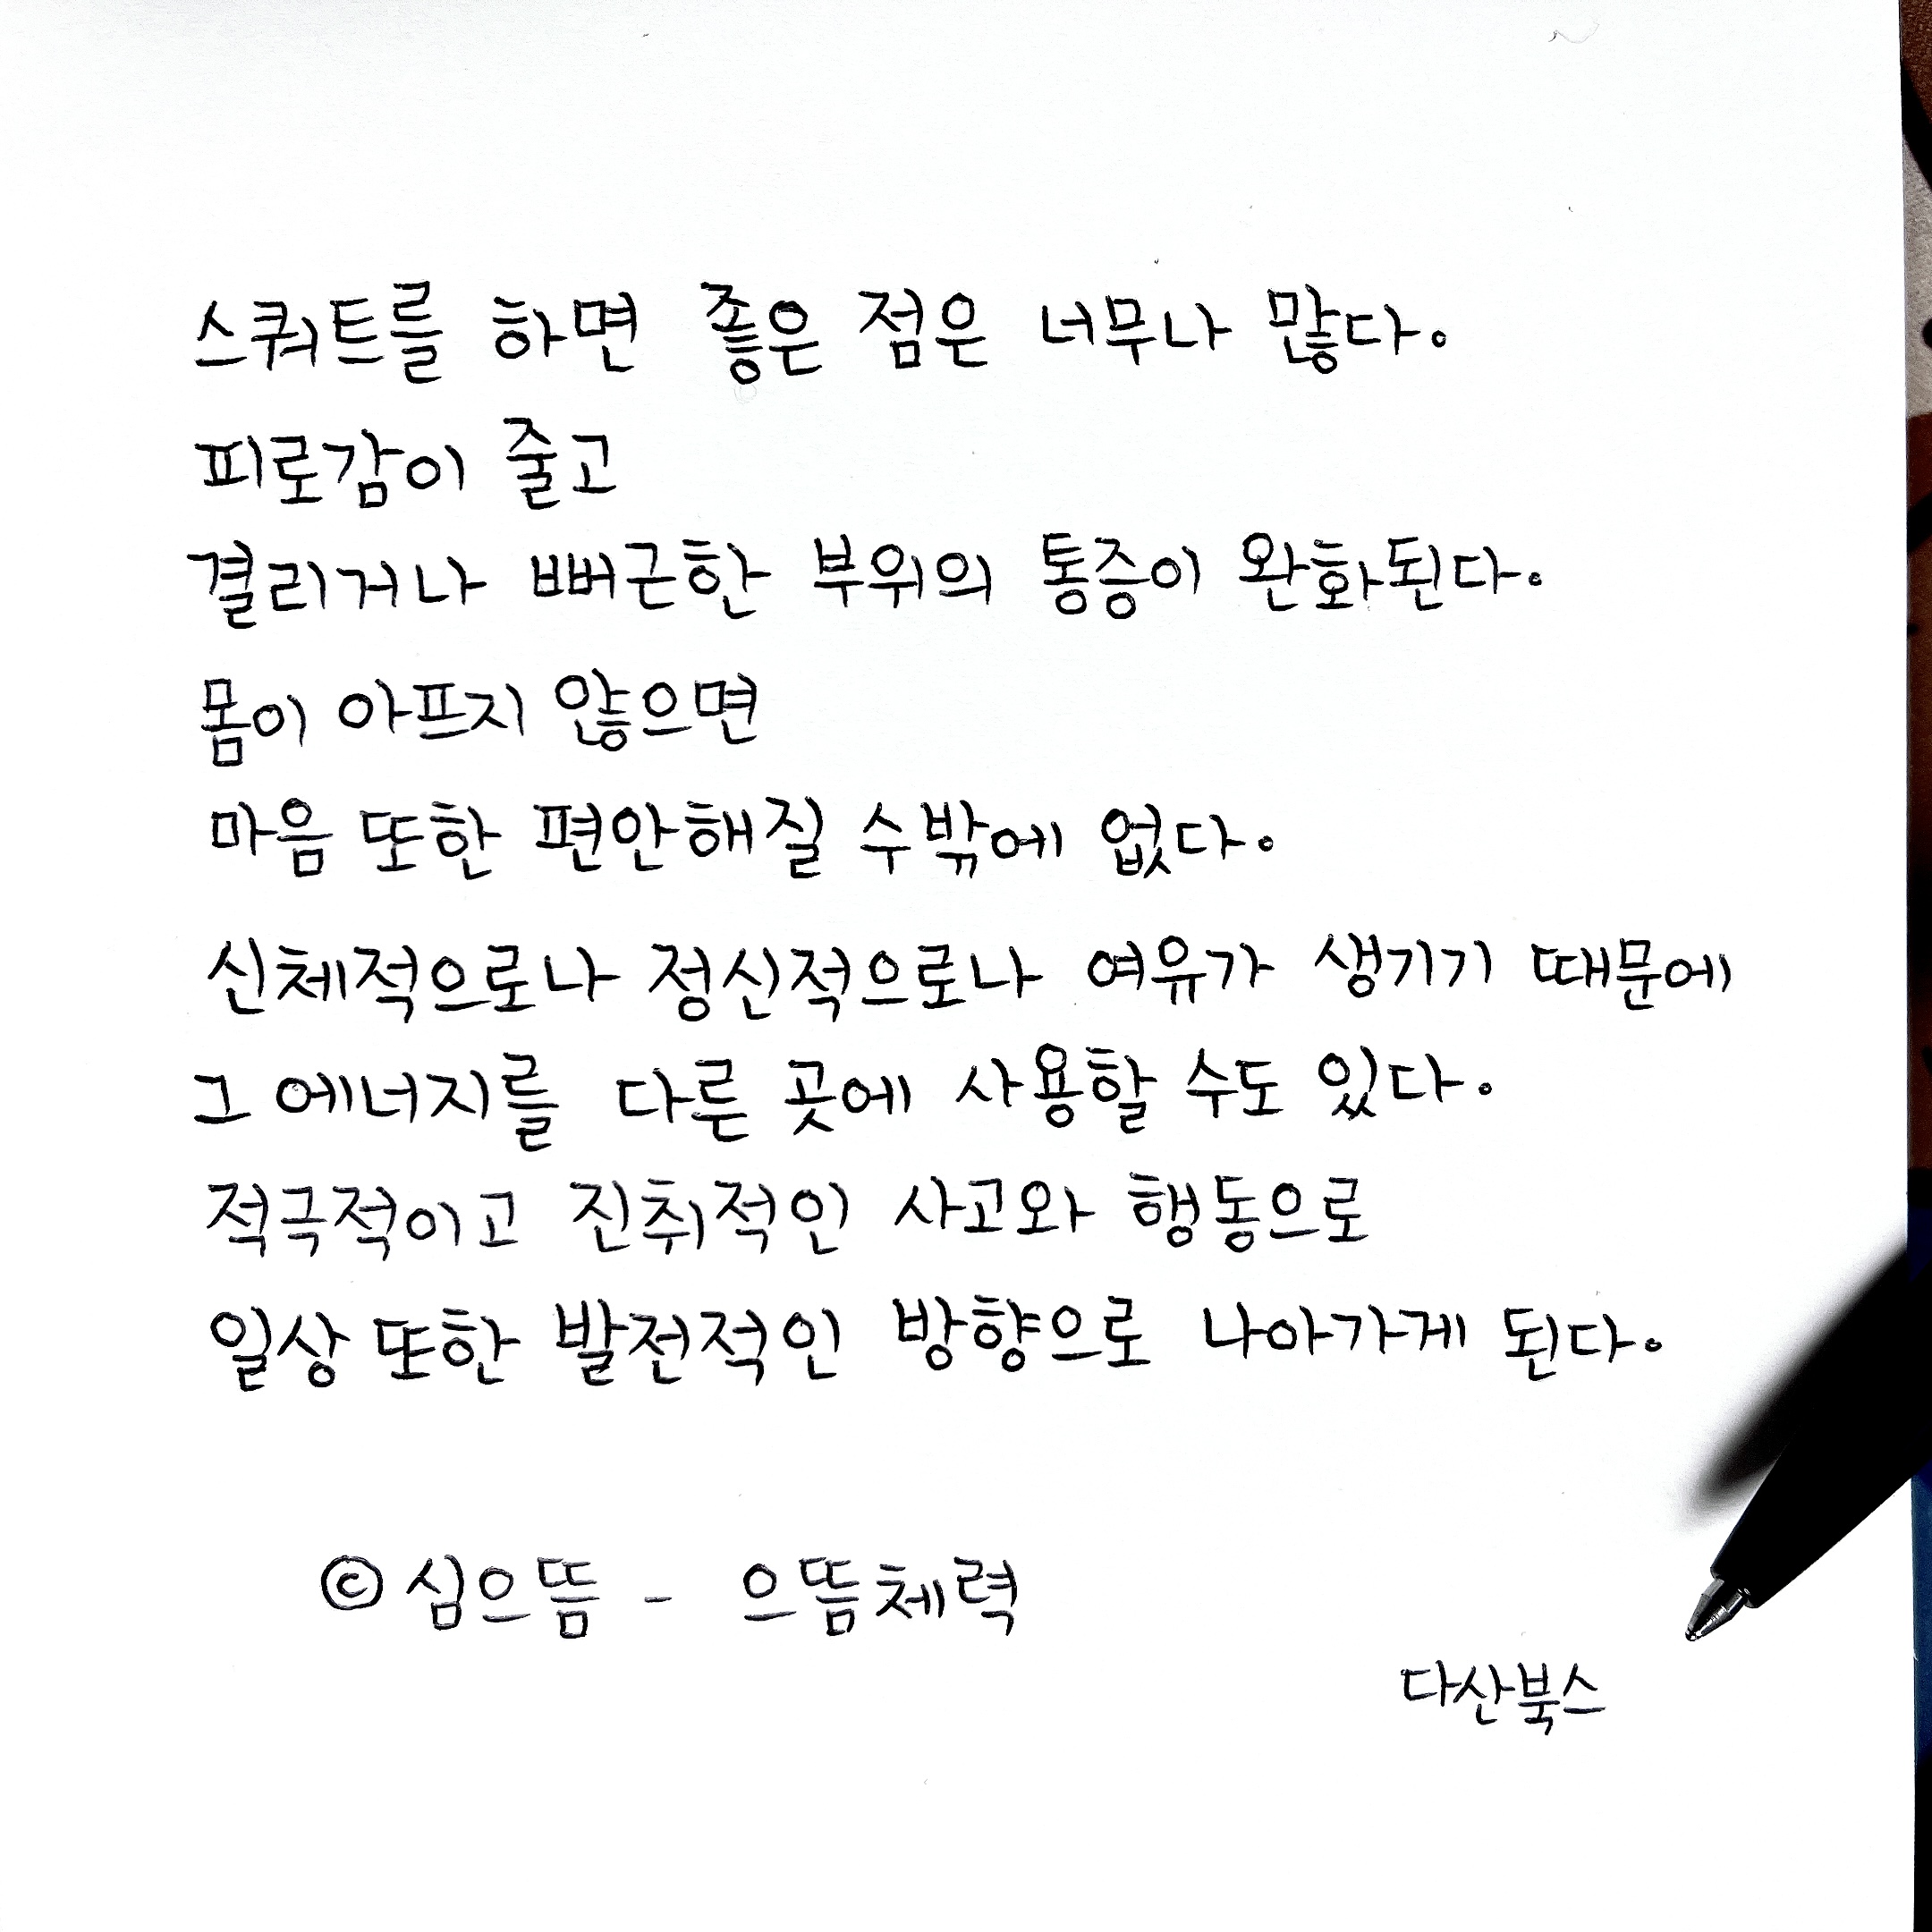 스쿼트를 하면 좋은 점은 너무나 많다.
피로감이 줄고
결리거나 뻐근한 부위의 통증이 완화된다.
몸이 아프지 않으면
마음 또한 편안해질 수밖에 없다.
신체적으로나 정신적으로나 여유가 생기기 때문에
그 에너지를 다른 곳에 사용할 수도 있다.
적극적이고 진취적인 사고와 행동으로
일상 또한 발전적인 방향으로 나아가게 된다.
© 심으뜸 - 으뜸체력
다산북스